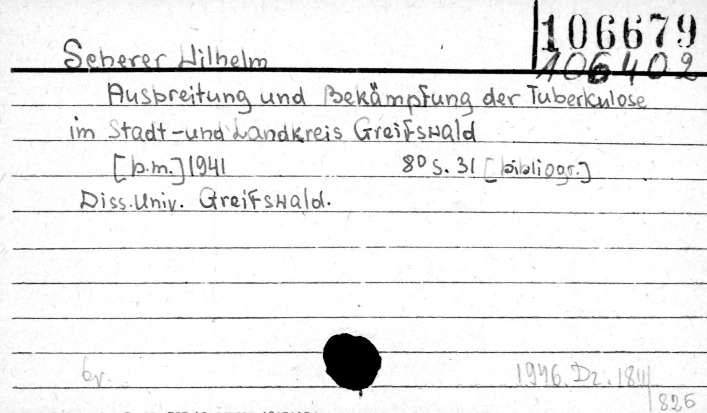 106679
Seherer Wilhelm 106402
Ausbreitung und Bekämpfung der Tuberkulose
im Stadt-und Landkreis Greifswald
[b.m.] 1941 8° S. 31 [bibliogr.]
Diss. Univ. Greifswald.
br. 1946. Dz. 184/
826